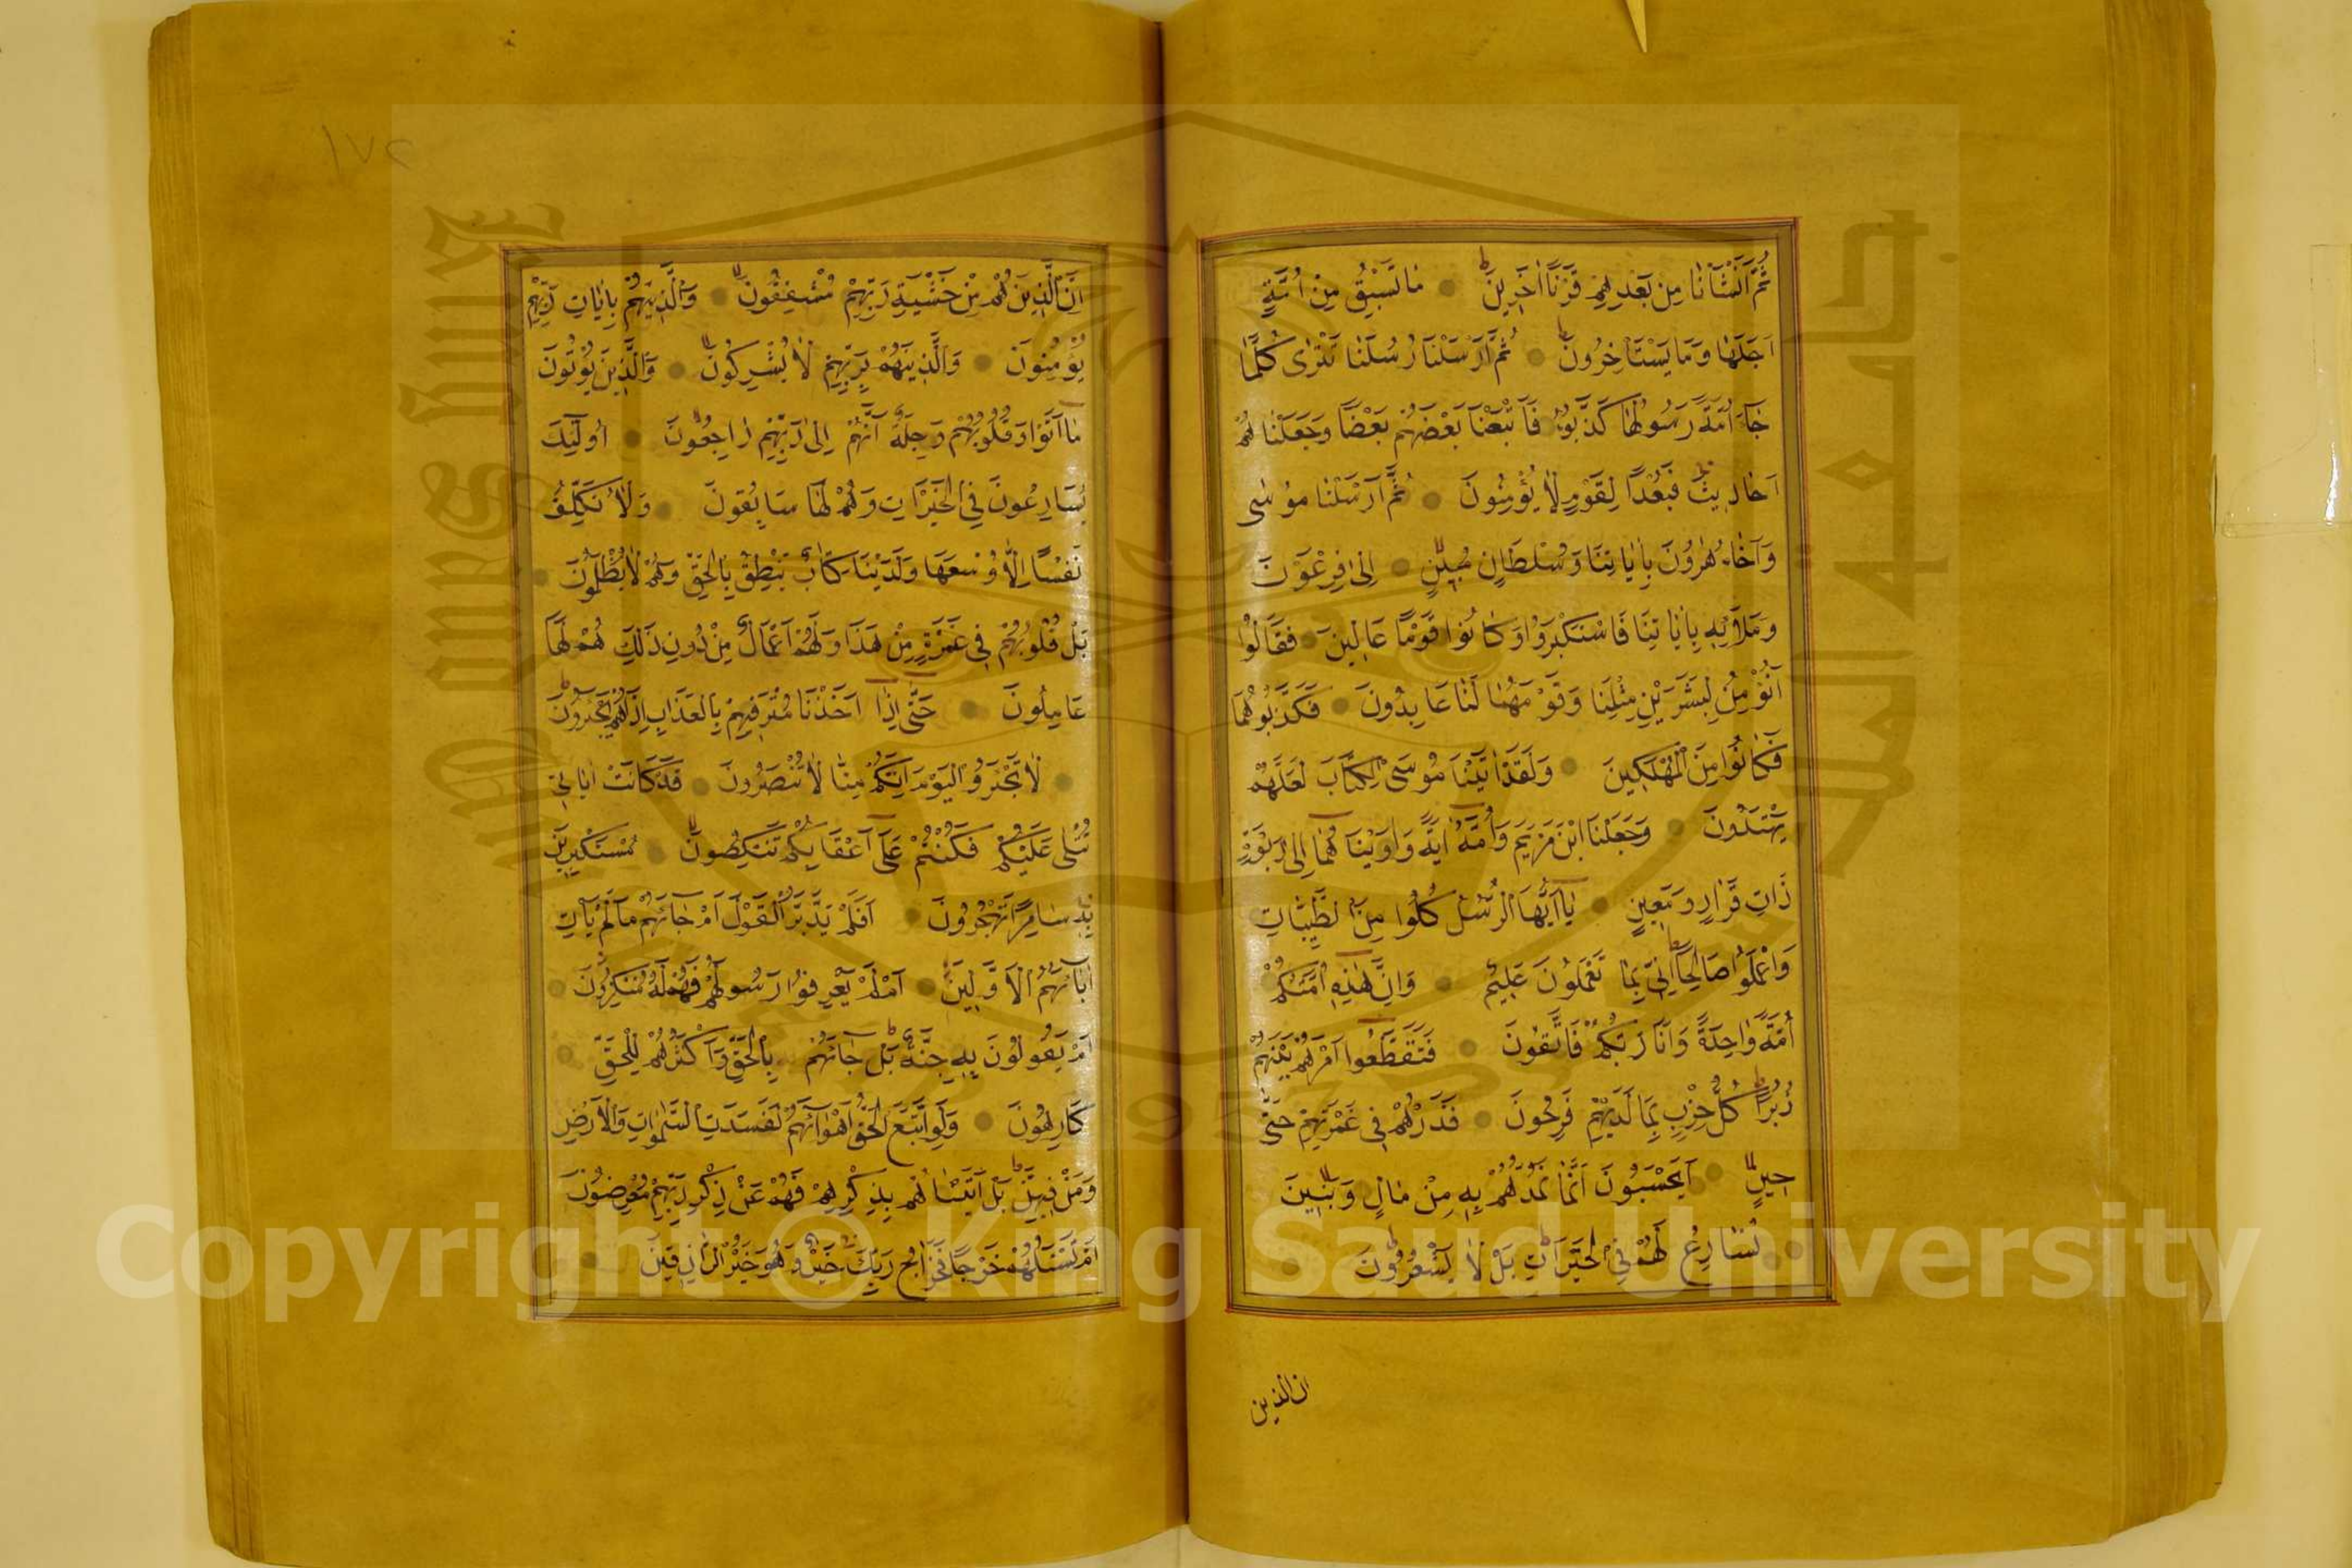 ثُمَّ اَنْشَاْنَا مِنْ بَعْدِهِمْ قَرْنًا اٰخَرِينَ مَا تَسْبِقُ مِنْ اُمَّةٍ
اَجَلَهَا وَمَا يَسْتَاْخِرُونَ ثُمَّ اَرْسَلْنَا رُسُلَنَا تَتْرٰى كُلَّمَا
جَٓاءَ اُمَّةً رَسُولُهَا كَذَّبُوهُ فَاَتْبَعْنَا بَعْضَهُمْ بَعْضًا وَجَعَلْنَا لهُمْ
اَحَادِيثَ فَبُعْدًا لِقَوْمٍ لَا يُؤْمِنُونَ ثُمَّ اَرْسَلْنَا مُوسٰى
وَاَخَاهُ هٰرُونَ بِاٰيَاتِنَا وَسُلْطَانٍ مُبِينٍ اِلٰى فِرْعَوْنَ
وَمَلَائِهِ بِاٰيَاتِنَا فَاسْتَكْبَرُوا وَكَانُوا قَوْمًا عَالِينَ فَقَالُوا
اَنُؤْمِنُ لِبَشَرَيْنِ مِثْلِنَا وَقَوْمُهُمَا لَنَا عَابِدُونَ فَكَذَّبُوهُمَا
فَكَانُوا مِنَ الْمُهْلَكِينَ وَلَقَدْ اٰتَيْنَا مُوسَى الْكِتَابَ لَعَلَّهُمْ
يَهْتَدُونَ وَجَعَلْنَا ابْنَ مَرْيَمَ وَاُمَّهُ اٰيَةً وَاٰوَيْنَاهُمَا اِلٰى رَبْوَةٍ
ذَاتِ قَرَارٍ وَمَعِينٍ يَا اَيُّهَا الرُّسُلُ كُلُوا مِنَ الطَّيِّبَاتِ
وَاعْمَلُوا صَالِحًا اِنِّى بِمَا تَعْمَلُونَ عَلِيمٌ وَاِنَّ هٰذِهِ اُمَّتُكُمْ
اُمَّةً وَاحِدَةً وَاَنَا رَبُّكُمْ فَاتَّقُونَ فَتَقَطَّعُوا اَمْرَهُمْ بَيْنَهُمْ
زُبُرًا كُلُّ حِزْبٍ بِمَا لَدَيْهِمْ فَرِحُونَ فَذَرْهُمْ فِى غَمْرَتِهِمْ حَتّٰى
حِينٍ اَيَحْسَبُونَ اَنَّمَا نُمِدُّهُمْ بِهِ مِنْ مَالٍ وَبَنِينَ
نُسَارِعُ لَهُمْ فِى الْخَيْرَاتِ بَلْ لَا يَشْعُرُونَ
ان الذين
١٧٢
اِنَّ الَّذِينَ هُمْ مِنْ خَشْيَةِ رَبِّهِمْ مُشْفِقُونَ وَالَّذِينَ هُمْ بِاٰيَاتِ رَبِّهِمْ
يُؤْمِنُونَ وَالَّذِينَ هُمْ بِرَبِّهِمْ لَا يُشْرِكُونَ وَالَّذِينَ يُؤْتُونَ
مَا اٰتَوْا وَقُلُوبُهُمْ وَجِلَةٌ اَنَّهُمْ اِلٰى رَبِّهِمْ رَاجِعُونَ اُولٰٓئِكَ
يُسَارِعُونَ فِى الْخَيْرَاتِ وَهُمْ لَهَا سَابِقُونَ وَلَا نُكَلِّفُ
نَفْسًا اِلَّا وُسْعَهَا وَلَدَيْنَا كِتَابٌ يَنْطِقُ بِالْحَقِّ وَهُمْ لَا يُظْلَمُونَ
بَلْ قُلُوبُهُمْ فِى غَمْرَةٍ مِنْ هٰذَا وَلَهُمْ اَعْمَالٌ مِنْ دُونِ ذٰلِكَ هُمْ لَهَا
عَامِلُونَ حَتّٰى اِذَا اَخَذْنَا مُتْرَفِيهِمْ بِالْعَذَابِ اِذَا هُمْ يَجْـَٔرُونَ
لَا تَجْـَٔرُوا الْيَوْمَ اِنَّكُمْ مِنَّا لَا تُنْصَرُونَ قَدْ كَانَتْ اٰيَاتِى
تُتْلٰى عَلَيْكُمْ فَكُنْتُمْ عَلٰى اَعْقَابِكُمْ تَنْكِصُونَ مُسْتَكْبِرِينَ
بِهِ سَامِرًا تَهْجُرُونَ اَفَلَمْ يَدَّبَّرُوا الْقَوْلَ اَمْ جَاءَهُمْ مَا لَمْ يَاْتِ
اٰبَاءَهُمُ الْاَوَّلِينَ اَمْ لَمْ يَعْرِفُوا رَسُولَهُمْ فَهُمْ لَهُ مُنْكِرُونَ
اَمْ يَقُولُونَ بِهِ جِنَّةٌ بَلْ جَاءَهُمْ بِالْحَقِّ وَاَكْثَرُهُمْ لِلْحَقِّ
كَارِهُونَ وَلَوِ اتَّبَعَ الْحَقُّ اَهْوَاءَهُمْ لَفَسَدَتِ السَّمٰوَاتُ وَالْاَرْضُ
وَمَنْ فِيهِنَّ بَلْ اَتَيْنَاهُمْ بِذِكْرِهِمْ فَهُمْ عَنْ ذِكْرِهِمْ مُعْرِضُونَ
اَمْ تَسْـَٔلُهُمْ خَرْجًا فَخَرَاجُ رَبِّكَ خَيْرٌ وَهُوَ خَيْرُ الرَّازِقِينَ
Copyright © King Saud University
King Saud University
1957